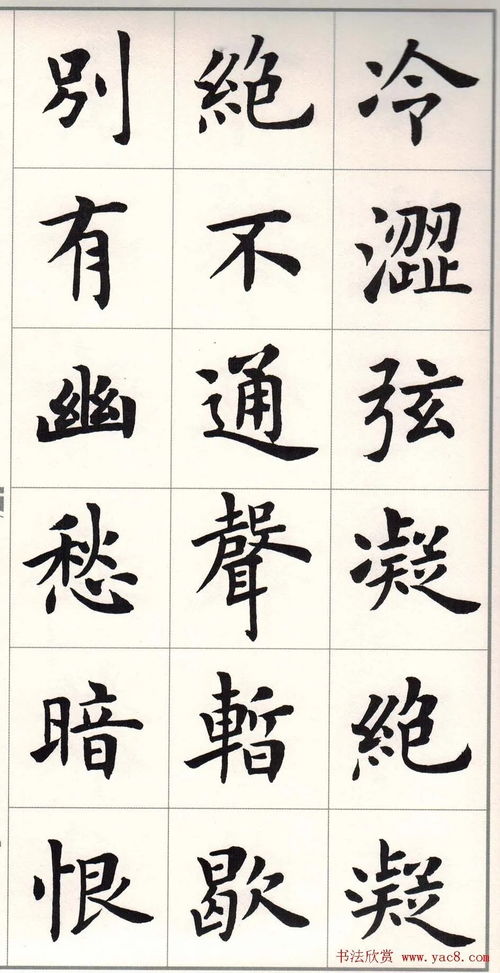 冷澀弦凝絕凝
絕不通聲暫歇
別有幽愁暗恨
书法欣赏 www.yac8.com